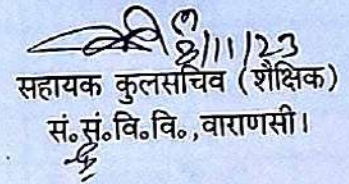 8/11/23
सहायक कुलसचिव (शैक्षिक)
सं॰सं॰वि॰वि॰,वाराणसी।